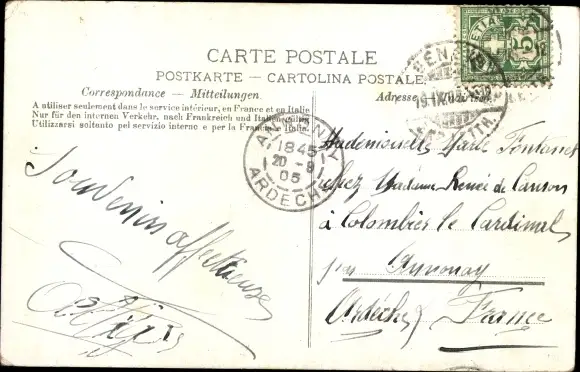 CARTE POSTALE
POSTKARTE – CARTOLINA POSTALE
Correspondance – Mitteilungen
Adresse
A utiliser seulement dans le service intérieur, en France et en Italie
Nur für den internen Verkehr, nach Frankreich und Italien gültig
Utilizzarsi soltanto pel servizio interno e per la Francia e Italia.
ANNONAY
1845
20 - 9
05
ARDECHE
5
Souvenir affectueux
Mademoiselle Marle Fontanes
chez Madame Renée de Canson
à Colombier le Cardinal
par Annonay
Ardèche France